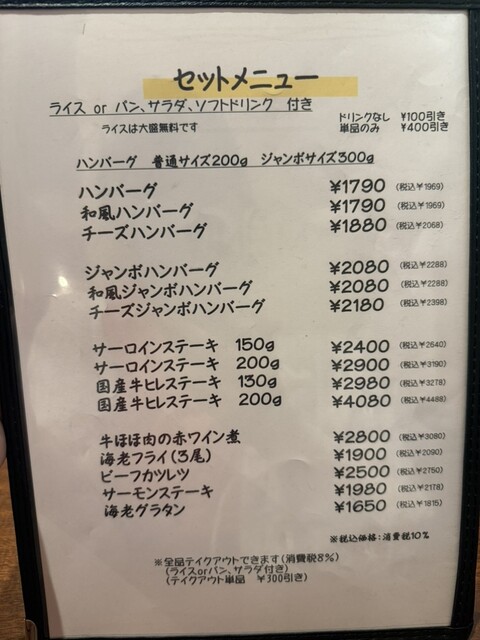 セットメニュー
ライス or パン、サラダ、ソフトドリンク 付き
ドリンクなし ¥100引き
ライスは大盛無料です
単品のみ ¥400引き
ハンバーグ 普通サイズ200g ジャンボサイズ300g
ハンバーグ ¥1790 (税込¥1969)
和風ハンバーグ ¥1790 (税込¥1969)
チーズハンバーグ ¥1880 (税込¥2068)
ジャンボハンバーグ ¥2080 (税込¥2288)
和風ジャンボハンバーグ ¥2080 (税込¥2288)
チーズジャンボハンバーグ ¥2180 (税込¥2398)
サーロインステーキ 150g ¥2400 (税込¥2640)
サーロインステーキ 200g ¥2900 (税込¥3190)
国産牛ヒレステーキ 130g ¥2980 (税込¥3278)
国産牛ヒレステーキ 200g ¥4080 (税込¥4488)
牛ほほ肉の赤ワイン煮 ¥2800 (税込¥3080)
海老フライ(3尾) ¥1900 (税込¥2090)
ビーフカツレツ ¥2500 (税込¥2750)
サーモンステーキ ¥1980 (税込¥2178)
海老グラタン ¥1650 (税込¥1815)
※税込価格:消費税10%
※全品テイクアウトできます(消費税8%)
(ライスorパン、サラダ付き)
(テイクアウト単品 ¥300引き)